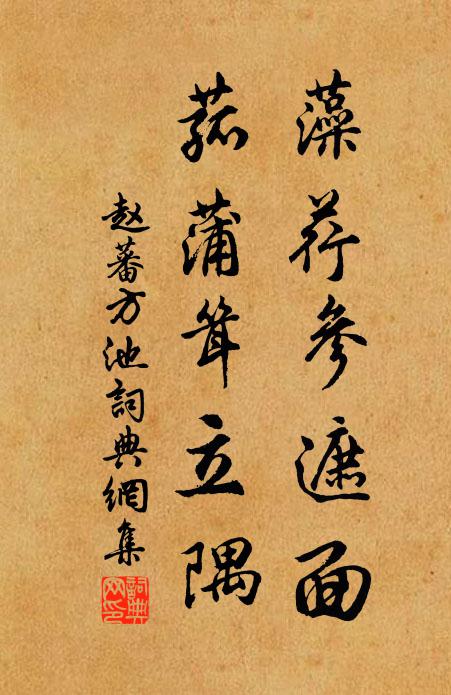 藻荇參遮面
菰蒲耸立隅
赵蕃方池詞典網集
詞典网印